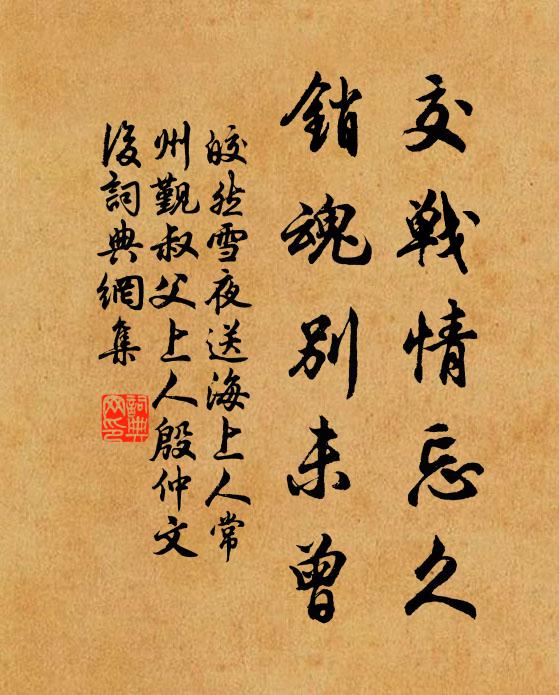 交戰情忘久
銷魂別未曾
皎然雪夜送海上人常
州覲叔父上人殷仲文
後詞典網集
詞典
网印